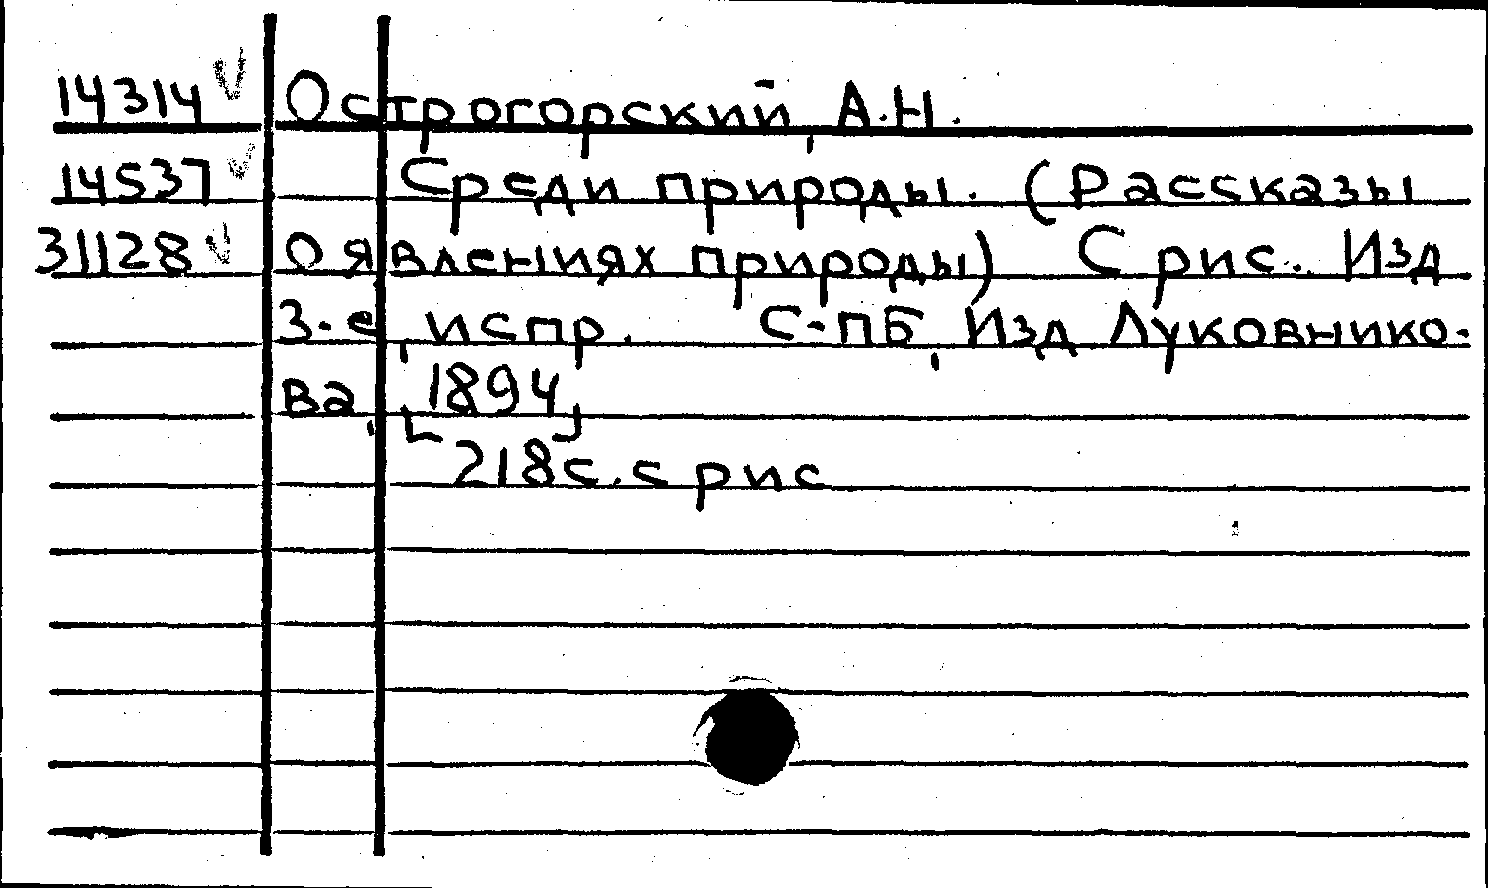 14314 V Острогорский, А.Н.
14537 V Среди природы. (Рассказы
31128 V о явлениях природы) С рис. Изд
3-е, испр. С-ПБ, Изд Луковнико-
ва, 1894
218с. с рис